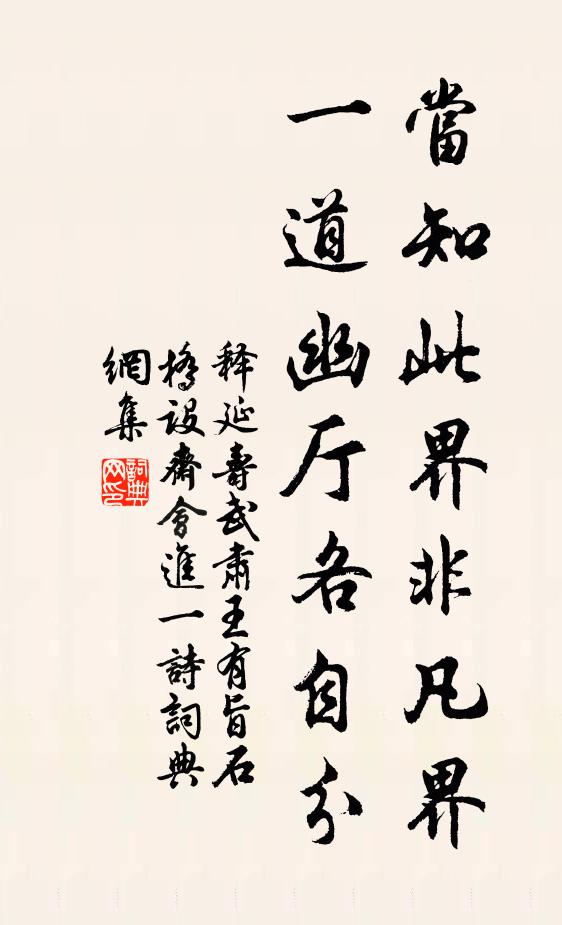 當知此界非凡界
一道幽厅各自分
释延壽武肅王有旨石
橋設齋會進一詩詞典
網集
詞典
网印